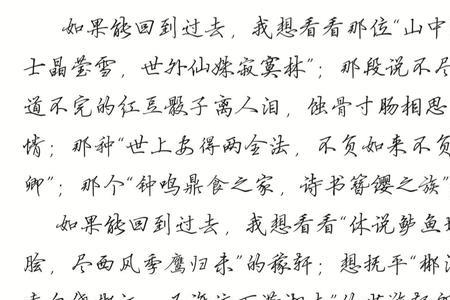 如果能回到过去，我想看看那位“山中
士晶莹雪，世外仙姝寂寞林”；那段说不尽
道不完的红豆骰子离人泪，蚀骨寸肠相思
情；那种“世上安得两全法，不负如来不负
卿”；那个“钟鸣鼎食之家，诗书簪缨之族”
如果能回到过去，我想看看“休说鲈鱼堪
脍，尽西风季鹰归未”的稼轩；想抚平“郴江